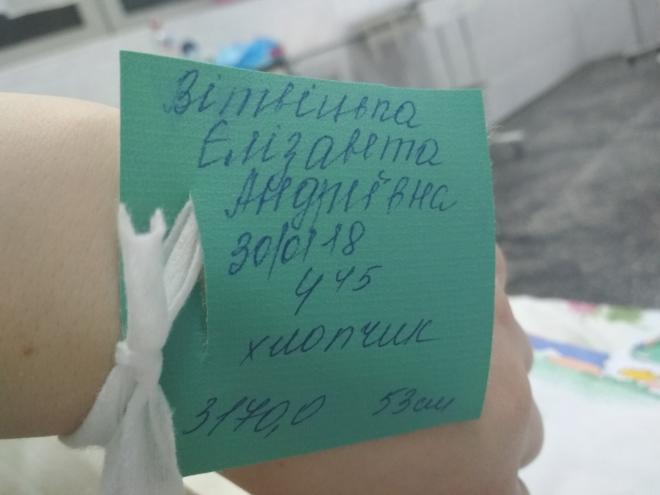 Вітвіцька
Єлізавета
Андріївна
30/01 18
4 45
хлопчик
3170,0 53см